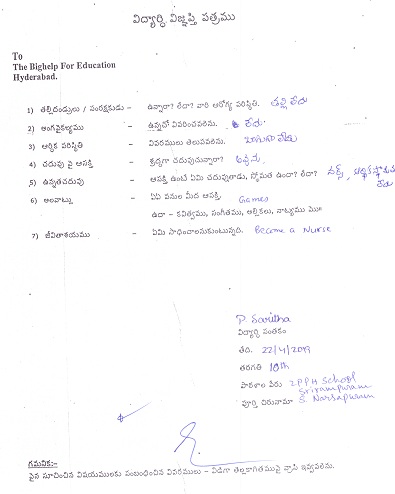 విద్యార్ధి విజ్ఞప్తి పత్రము
To
The Bighelp For Education
Hyderabad.
1) తల్లిదండ్రులు / సంరక్షకుడు – ఉన్నారా? లేదా? వారి ఆరోగ్య పరిస్థితి. తల్లి లేదు
2) అంగవైకల్యము – ఉన్నచో వివరించవలెను. లేదు
3) ఆర్థిక పరిస్థితి – వివరములు తెలుపవలెను. బాగుగా లేదు
4) చదువు పై ఆసక్తి – శ్రద్ధగా చదువుచున్నారా?
5) ఉన్నతచదువు – ఆసక్తి ఉంటే ఏమి చదువుతాడు, స్తోమత ఉందా? లేదా? నర్స్, ఆర్థిక స్తోమత లేదు
6) అలవాట్లు – ఏఏ పనుల మీద ఆసక్తి. Games
ఉదా – కవిత్వము, సంగీతము, అల్లికలు, నాట్యము మొ॥
7) జీవితాశయము – ఏమి సాధించాలనుకుంటున్నది. Become a Nurse
P. Saritha
విద్యార్ధి సంతకం
తేది. 22/4/2019
తరగతి 10th
పాఠశాల పేరు ZPPH School
Srirampuram
పూర్తి చిరునామా S. Narsapuram
గమనిక:-
పైన సూచించిన విషయములకు సంబంధించిన వివరములు – విడిగా తెల్లకాగితముపై వ్రాసి ఇవ్వవలెను.